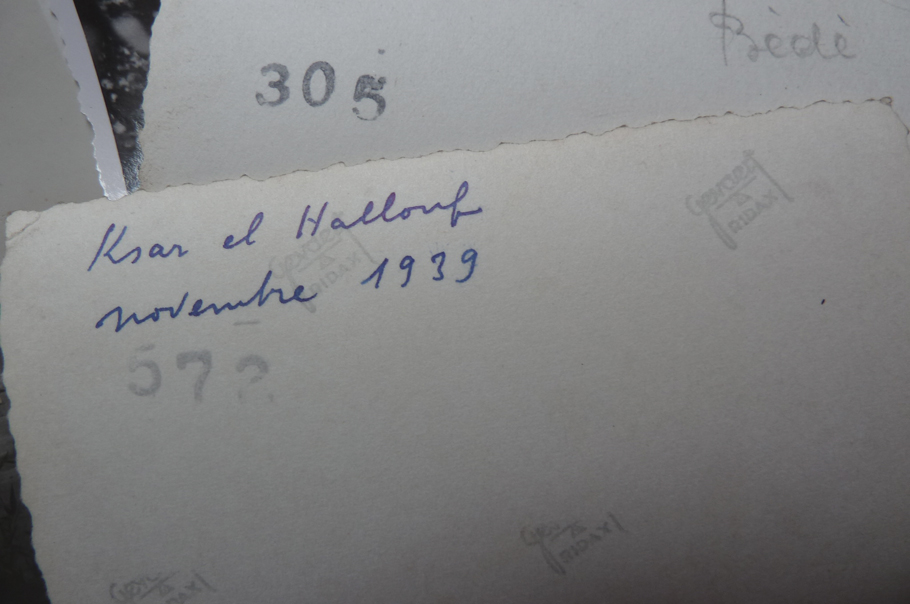 Bèdè
305
Ksar el Hallouf
novembre 1939
57?
Gevaert
RIDAX
Gevaert
RIDAX
RIDAX
RIDAX